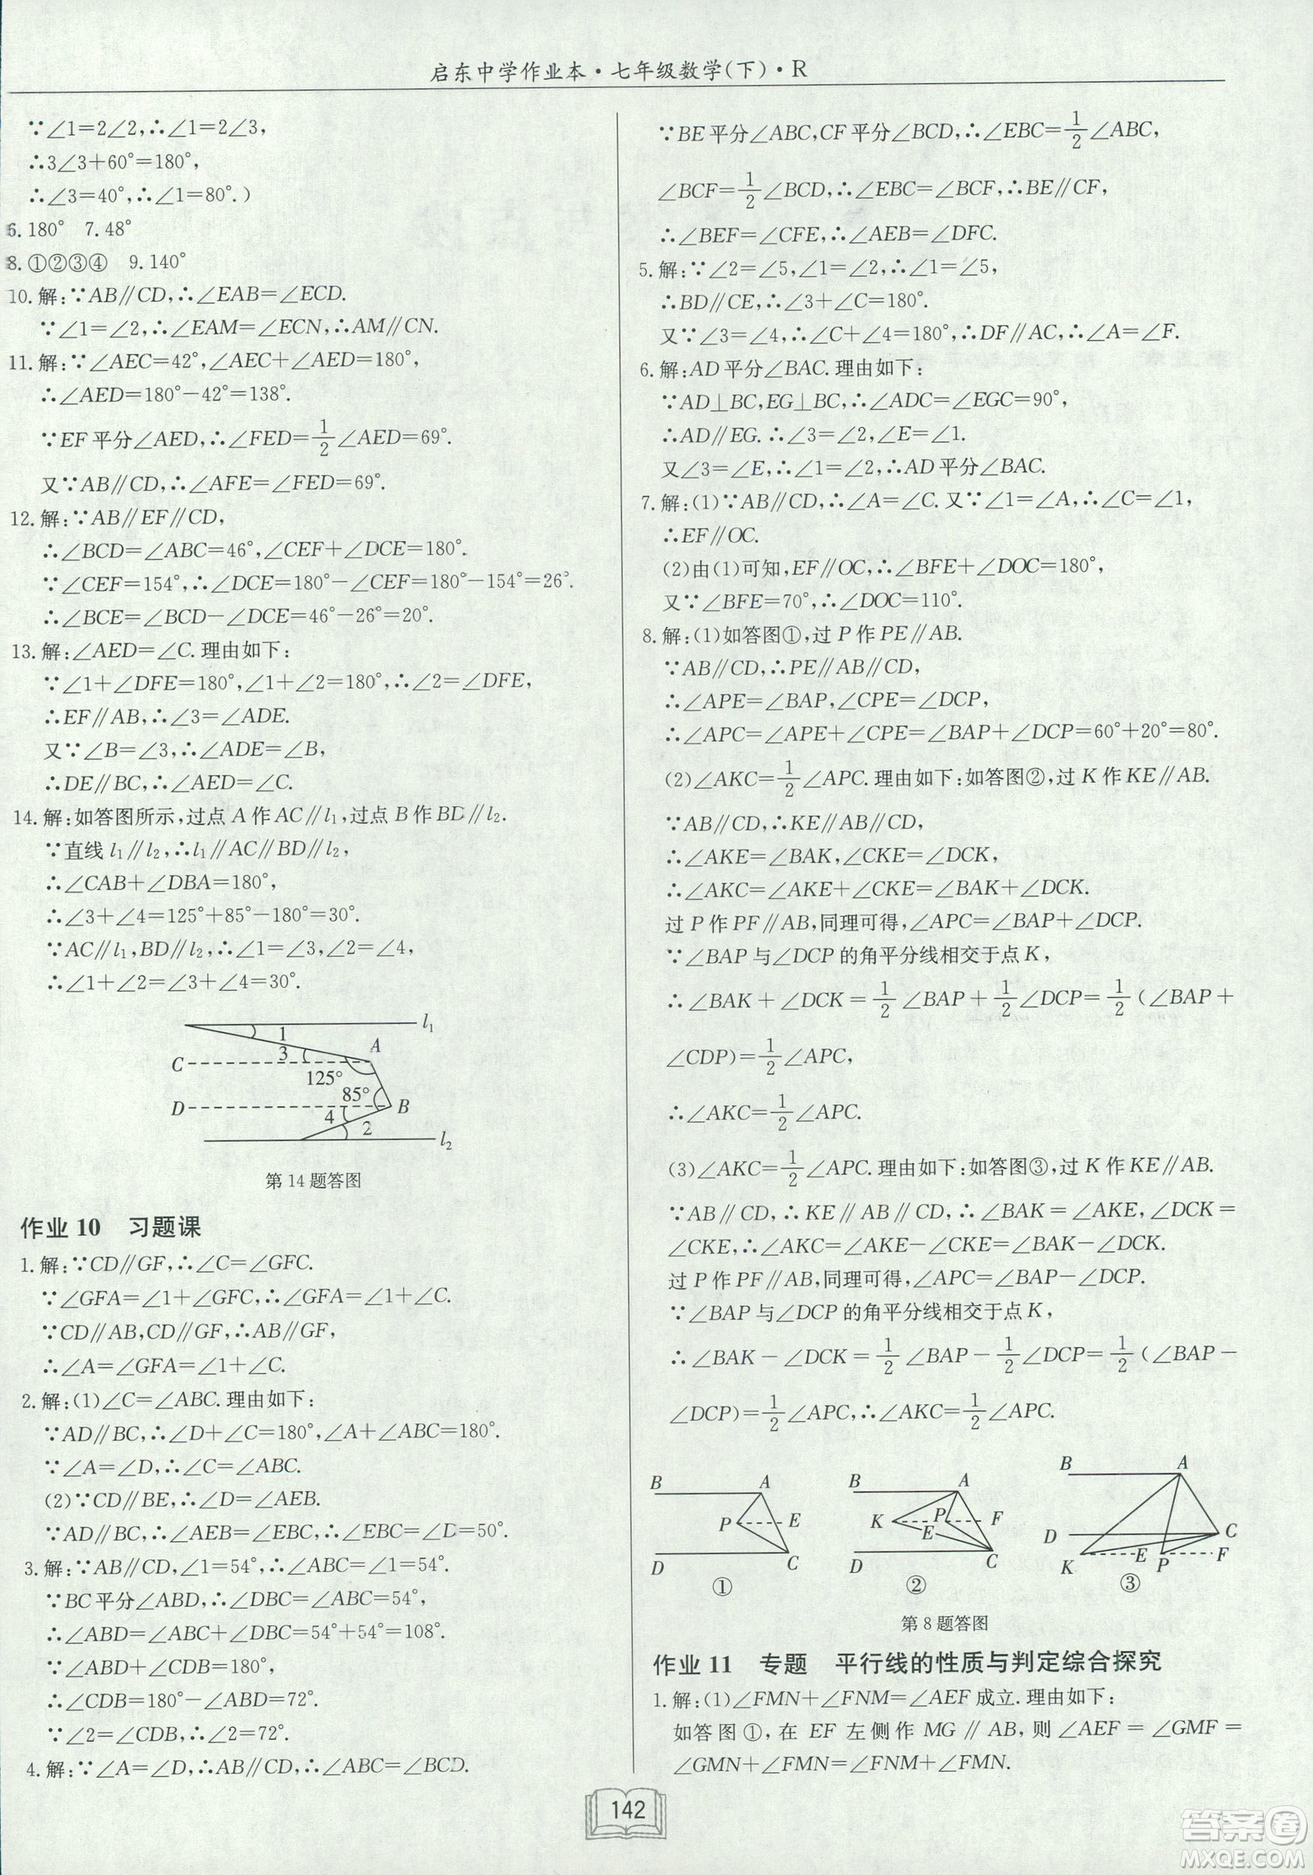 启东中学作业本·七年级数学(下)·R
∵∠1=2∠2,∴∠1=2∠3,
∴3∠3+60°=180°,
∴∠3=40°,∴∠1=80°.)
6.180° 7.48°
8.①②③④ 9.140°
10.解:∵AB∥CD,∴∠EAB=∠ECD.
∵∠1=∠2,∴∠EAM=∠ECN,∴AM∥CN.
11.解:∵∠AEC=42°,∠AEC+∠AED=180°,
∴∠AED=180°-42°=138°.
∵EF平分∠AED,∴∠FED=1/2∠AED=69°.
又∵AB∥CD,∴∠AFE=∠FED=69°.
12.解:∵AB∥EF∥CD,
∴∠BCD=∠ABC=46°,∠CEF+∠DCE=180°.
∵∠CEF=154°,∴∠DCE=180°-∠CEF=180°-154°=26°.
∴∠BCE=∠BCD-∠DCE=46°-26°=20°.
13.解:∠AED=∠C.理由如下:
∵∠1+∠DFE=180°,∠1+∠2=180°,∴∠2=∠DFE,
∴EF∥AB,∴∠3=∠ADE.
又∵∠B=∠3,∴∠ADE=∠B,
∴DE∥BC,∴∠AED=∠C.
14.解:如答图所示,过点A作AC∥l₁,过点B作BD∥l₂.
∵直线l₁∥l₂,∴l₁∥AC∥BD∥l₂,
∴∠CAB+∠DBA=180°,
∴∠3+∠4=125°+85°-180°=30°.
∵AC∥l₁,BD∥l₂,∴∠1=∠3,∠2=∠4,
∴∠1+∠2=∠3+∠4=30°.
1 l₁
C 3 A
125°
85°
D 4 B
2 l₂
第14题答图
作业10 习题课
1.解:∵CD∥GF,∴∠C=∠GFC.
∵∠GFA=∠1+∠GFC,∴∠GFA=∠1+∠C.
∵CD∥AB,CD∥GF,∴AB∥GF,
∴∠A=∠GFA=∠1+∠C.
2.解:(1)∠C=∠ABC.理由如下:
∵AD∥BC,∴∠D+∠C=180°,∠A+∠ABC=180°.
∵∠A=∠D,∴∠C=∠ABC.
(2)∵CD∥BE,∴∠D=∠AEB.
∵AD∥BC,∴∠AEB=∠EBC,∴∠EBC=∠D=50°.
3.解:∵AB∥CD,∠1=54°,∴∠ABC=∠1=54°.
∵BC平分∠ABD,∴∠DBC=∠ABC=54°,
∴∠ABD=∠ABC+∠DBC=54°+54°=108°.
∵∠ABD+∠CDB=180°,
∴∠CDB=180°-∠ABD=72°.
∵∠2=∠CDB,∴∠2=72°.
4.解:∵∠A=∠D,∴AB∥CD,∴∠ABC=∠BCD.
∵BE平分∠ABC,CF平分∠BCD,∴∠EBC=1/2∠ABC,
∠BCF=1/2∠BCD,∴∠EBC=∠BCF,∴BE∥CF,
∴∠BEF=∠CFE,∴∠AEB=∠DFC.
5.解:∵∠2=∠5,∠1=∠2,∴∠1=∠5,
∴BD∥CE,∴∠3+∠C=180°.
又∵∠3=∠4,∴∠C+∠4=180°,∴DF∥AC,∴∠A=∠F.
6.解:AD平分∠BAC.理由如下:
∵AD⊥BC,EG⊥BC,∴∠ADC=∠EGC=90°,
∴AD∥EG.∴∠3=∠2,∠E=∠1.
又∠3=∠E,∴∠1=∠2,∴AD平分∠BAC.
7.解:(1)∵AB∥CD,∴∠A=∠C.又∵∠1=∠A,∴∠C=∠1,
∴EF∥OC.
(2)由(1)可知,EF∥OC,∴∠BFE+∠DOC=180°,
又∵∠BFE=70°,∴∠DOC=110°.
8.解:(1)如答图①,过P作PE∥AB.
∵AB∥CD,∴PE∥AB∥CD,
∴∠APE=∠BAP,∠CPE=∠DCP,
∴∠APC=∠APE+∠CPE=∠BAP+∠DCP=60°+20°=80°.
(2)∠AKC=1/2∠APC.理由如下:如答图②,过K作KE∥AB.
∵AB∥CD,∴KE∥AB∥CD,
∴∠AKE=∠BAK,∠CKE=∠DCK,
∴∠AKC=∠AKE+∠CKE=∠BAK+∠DCK.
过P作PF∥AB,同理可得,∠APC=∠BAP+∠DCP.
∵∠BAP与∠DCP的角平分线相交于点K,
∴∠BAK+∠DCK=1/2∠BAP+1/2∠DCP=1/2(∠BAP+
∠CDP)=1/2∠APC,
∴∠AKC=1/2∠APC.
(3)∠AKC=1/2∠APC.理由如下:如答图③,过K作KE∥AB.
∵AB∥CD,∴KE∥AB∥CD,∴∠BAK=∠AKE,∠DCK=
∠CKE,∴∠AKC=∠AKE-∠CKE=∠BAK-∠DCK.
过P作PF∥AB,同理可得,∠APC=∠BAP-∠DCP.
∵∠BAP与∠DCP的角平分线相交于点K,
∴∠BAK-∠DCK=1/2∠BAP-1/2∠DCP=1/2(∠BAP-
∠DCP)=1/2∠APC,∴∠AKC=1/2∠APC.
B A
P E
D C
①
B A
K E P F
D C
②
B A
D C
K E P F
③
第8题答图
作业11 专题 平行线的性质与判定综合探究
1.解:(1)∠FMN+∠FNM=∠AEF成立.理由如下:
如答图①,在EF左侧作MG∥AB,则∠AEF=∠GMF=
∠GMN+∠FMN=∠FNM+∠FMN.
142
答案圈
MXQE.COM